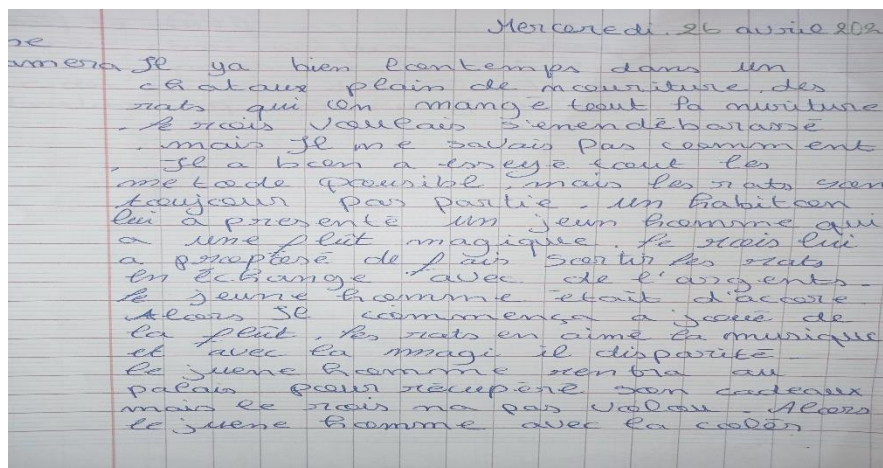 Mercredi 26 avril 202
ne
amera Il ya bien lontemps dans un
chataux plain de nouriture, des
rats qui con mangé tout la nuriture
. le rois voulais s'enendébarassé
. mais Il ne savais pas comment
. Il a bien a esseyé tout les
metode pousible, mais les rats son
toujour pas partie. un habiton
lui a presenté un jeun homme qui
a une flût magique. le rois lui
a proposé de fais sortir les rats
en échange avec de l'argents.
le jeune homme etait d'accore
Alors Il commença a joué de
la flût. les rats en aimé la musique
et avec la magi il disparité
le juene homme rentra au
palais pour récupéré son cadeaux
mais le rois na pas volou. Alors
le juene homme avec la colèr